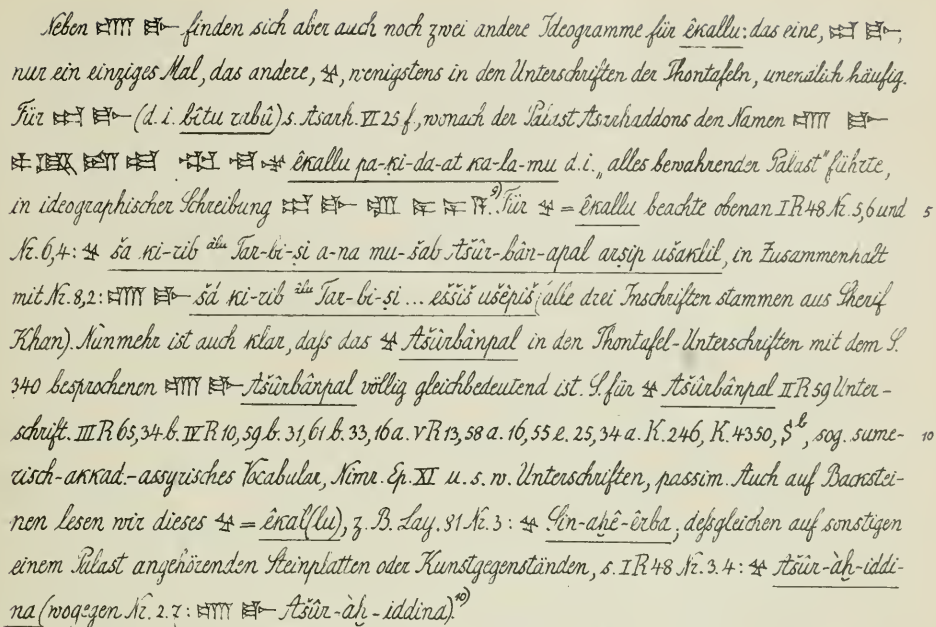 Neben 𒂍𒃲 finden sich aber auch noch zwei andere Ideogramme für êkallu: das eine, 𒂍𒃲,
nur ein einziges Mal, das andere, 𒆳, wenigstens in den Unterschriften der Thontafeln, unendlich häufig.
Für (d. i. bîtu rabû) s. Asarh. VI 25 f., wonach der Palast Asarhaddons den Namen
êkallu pa-ki-da-at ka-la-mu d. i. „alles bewahrender Palast" führte,
in ideographischer Schreibung 9) Für = êkallu beachte obenan I R 48 Nr. 5, 6 und 5
Nr. 6, 4: ša ki-rib âlu Tar-bi-ṣi a-na mu-šab Ašûr-bân-apal arṣip ušaklil, in Zusammenhalt
mit Nr. 8, 2: šá ki-rib âlu Tar-bi-ṣi ... eššiš ušêpiš (alle drei Inschriften stammen aus Sherif
Khan). Nunmehr ist auch klar, daſs das Ašûrbânpal in den Thontafel-Unterschriften mit dem S.
340 besprochenen Ašûrbânpal völlig gleichbedeutend ist. S. für Ašûrbânpal II R 59 Unter-
schrift. III R 65, 34 b. IV R 10, 59 b. 31, 61 b. 33, 16 a. V R 13, 58 a. 16, 55 e. 25, 34 a. K. 246, K. 4350, Sᵇ, sog. sume- 10
risch-akkad.-assyrisches Vocabular, Nimr. Ep. XI u. s. w. Unterschriften, passim. Auch auf Backstei-
nen lesen wir dieses = êkal(lu), z. B. Lay. 81 Nr. 3: Sin-aḫê-êrba, deſsgleichen auf sonstigen
einem Palast angehörenden Steinplatten oder Kunstgegenständen, s. I R 48 Nr. 3. 4: Ašûr-àḫ-iddi-
na (wogegen Nr. 2. 7: Ašûr-àḫ-iddina). 10)